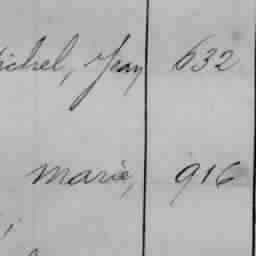 ichel, Jean 632
Marie, 916